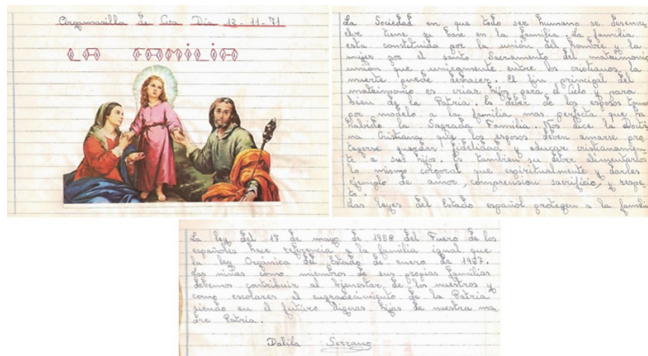 Argamasilla de Cva Día 13-11-71
La familia
La Sociedad en que todo ser humano se desenv
elve tiene su base en la familia. La familia
esta constituida por la unión del hombre y la
mujer por el santo Sacramento del matrimonio
union que unicamente entre los cristianos la
muerte puede deshacer. El fin principal del
matrimonio es criar hijos para el Cielo y para
bien de la Patria. La deber de los esposos tener
por modelo a la familia mas perfecta que ha
habido la Sagrada Familia. Nos dice la Doctri
na Cristiana que los esposos deben amarse pro
tegerse guardar fidelidad y educar cristianamen
te a sus hijos. Es tambien su deber alimentarlos
lo mismo corporal que espiritualmente y darles
ejemplo de amor, comprension sacrificio, y respe
to.
Las leyes del Estado español protegen a la famili
La ley del 17 de mayo de 1958 del Fuero de los
españoles hace referencia a la familia igual que
la ley Orgánica del Estado de enero de 1967.
Las niñas como miembros de sus propias familias
debemos contribuir al bienestar de los nuestros y
como escolares al engradecimiento de la Patria
siendo en el futuro dignas hijas de nuestra ma
dre Patria.
Dalila Serrano